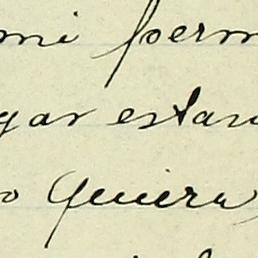 mi perm
gar estan
o quiera